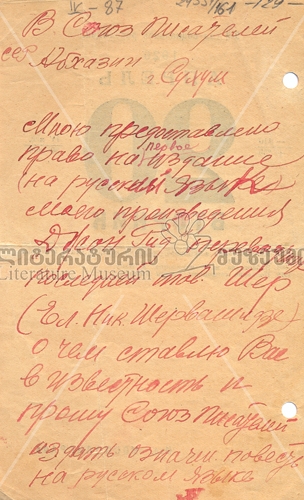 IV - 87
2453/161 -129-
В Союз Писателей
ССР Абхазии
г. Сухум
Мною предоставлено
право на первое издание
на русский языке
моего произведения
последней тов. Шер
ლიტერატურის მუზეუმი
Literature Museum
(Ел. Ник. Шервашидзе)
о чем ставлю Вас
в известность и
прошу Союз Писателей
издать означ. повесть
на русском языке